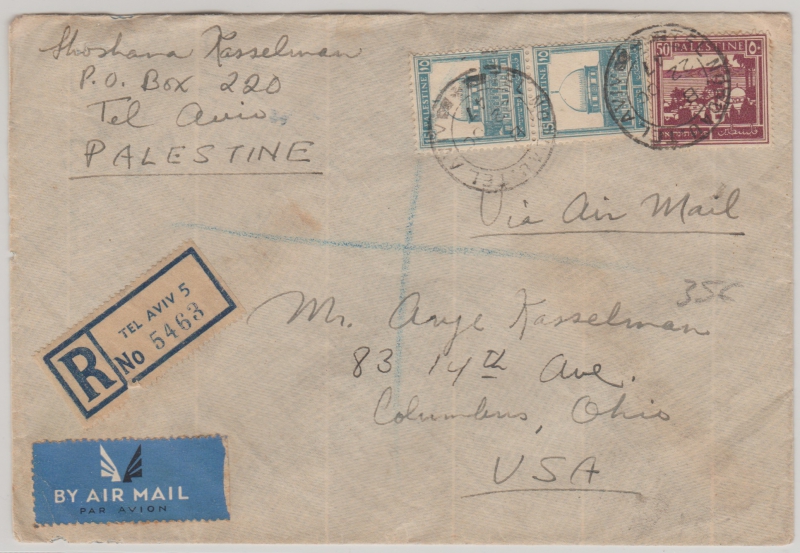 Shoshana Kasselman
P.O. Box 220
Tel Aviv
PALESTINE
10 PALESTINE
10
50 PALESTINE ٥٠
TEL AVIV
Via Air Mail
R
TEL AVIV 5
No 5463
35¢
Mr. Anye Kasselman
83 14th Ave.
Columbus, Ohio
USA
BY AIR MAIL
PAR AVION